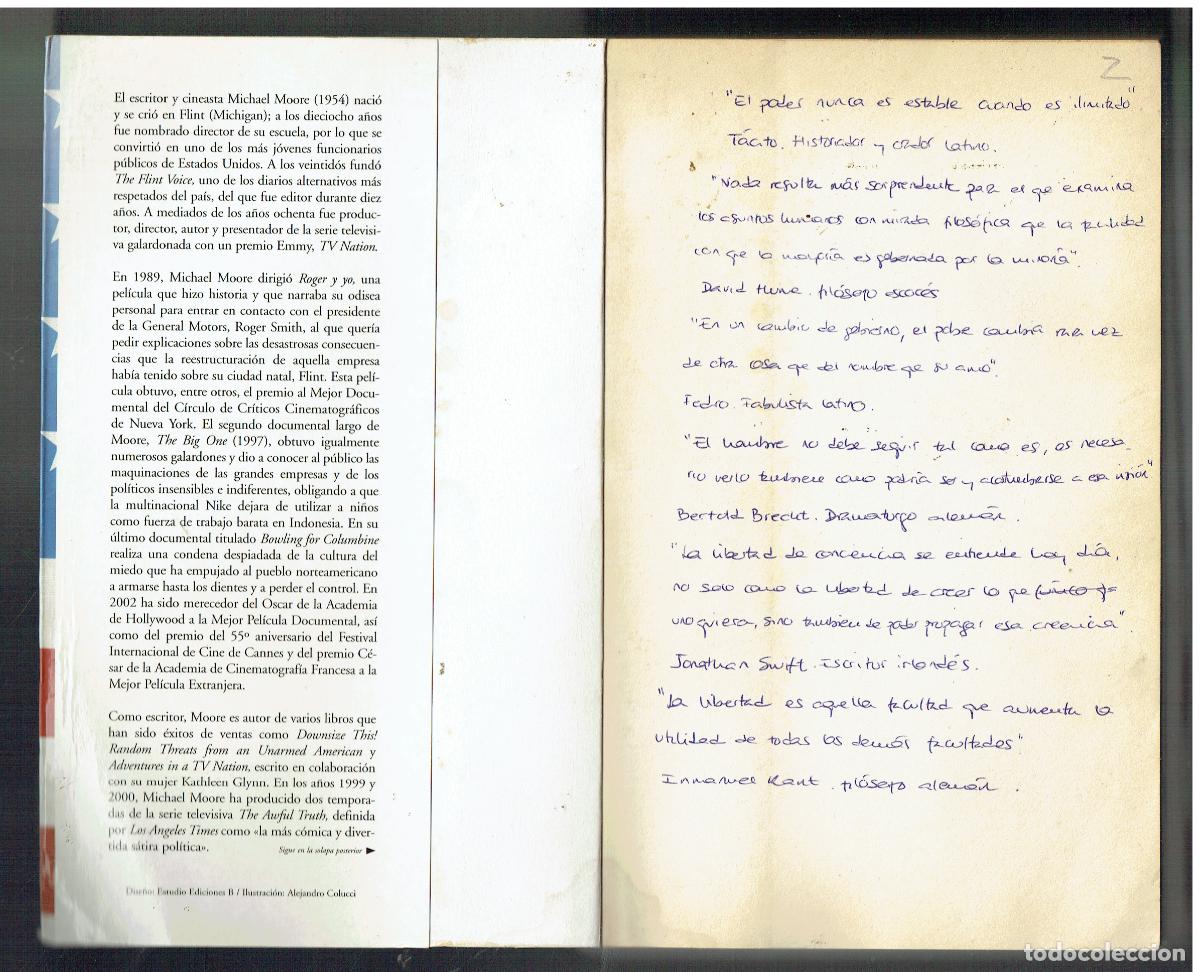 El escritor y cineasta Michael Moore (1954) nació
y se crió en Flint (Michigan); a los dieciocho años
fue nombrado director de su escuela, por lo que se
convirtió en uno de los más jóvenes funcionarios
públicos de Estados Unidos. A los veintidós fundó
The Flint Voice, uno de los diarios alternativos más
respetados del país, del que fue editor durante diez
años. A mediados de los años ochenta fue produc-
tor, director, autor y presentador de la serie televisi-
va galardonada con un premio Emmy, TV Nation.
En 1989, Michael Moore dirigió Roger y yo, una
película que hizo historia y que narraba su odisea
personal para entrar en contacto con el presidente
de la General Motors, Roger Smith, al que quería
pedir explicaciones sobre las desastrosas consecuen-
cias que la reestructuración de aquella empresa
había tenido sobre su ciudad natal, Flint. Esta pelí-
cula obtuvo, entre otros, el premio al Mejor Docu-
mental del Círculo de Críticos Cinematográficos
de Nueva York. El segundo documental largo de
Moore, The Big One (1997), obtuvo igualmente
numerosos galardones y dio a conocer al público las
maquinaciones de las grandes empresas y de los
políticos insensibles e indiferentes, obligando a que
la multinacional Nike dejara de utilizar a niños
como fuerza de trabajo barata en Indonesia. En su
último documental titulado Bowling for Columbine
realiza una condena despiadada de la cultura del
miedo que ha empujado al pueblo norteamericano
a armarse hasta los dientes y a perder el control. En
2002 ha sido merecedor del Oscar de la Academia
de Hollywood a la Mejor Película Documental, así
como del premio del 55º aniversario del Festival
Internacional de Cine de Cannes y del premio Cé-
sar de la Academia de Cinematografía Francesa a la
Mejor Película Extranjera.
Como escritor, Moore es autor de varios libros que
han sido éxitos de ventas como Downsize This!
Random Threats from an Unarmed American y
Adventures in a TV Nation, escrito en colaboración
con su mujer Kathleen Glynn. En los años 1999 y
2000, Michael Moore ha producido dos tempora-
das de la serie televisiva The Awful Truth, definida
por Los Angeles Times como «la más cómica y diver-
tida sátira política».
Sigue en la solapa posterior
Diseño: Estudio Ediciones B / Ilustración: Alejandro Colucci
2
"El poder nunca es estable cuando es ilimitado"
Tácito. Historiador y orador latino.
"Nada resulta más sorprendente para el que examina
los asuntos humanos con mirada filosófica que la facilidad
con que la mayoría es gobernada por la minoría".
David Hume. filósofo escocés
"En un cambio de gobierno, el pobre cambia rara vez
de otra cosa que del nombre que su amo".
Fedro. Fabulista latino.
"El hombre no debe seguir tal como es, es necesa-
rio verlo también como podría ser y acostumbrarse a esa visión"
Bertold Brecht. Dramaturgo alemán.
"La libertad de conciencia se entiende hoy día,
no solo como la libertad de creer lo que
uno quiera, sino también de poder propagar esa creencia"
Jonathan Swift. Escritor irlandés.
"La libertad es aquella facultad que aumenta la
utilidad de todas las demás facultades"
Inmanuel Kant. filósofo alemán.
todocoleccion